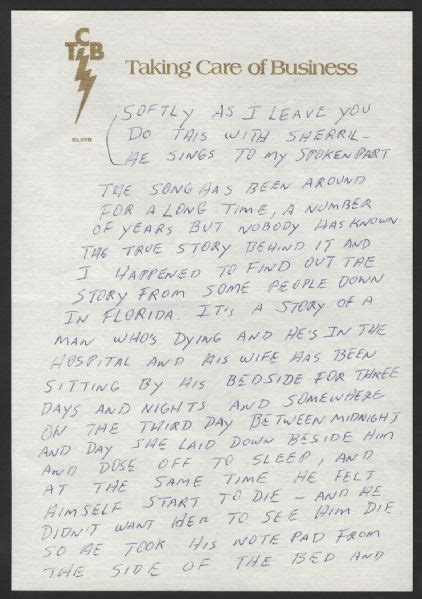 TCB
ELVIS
Taking Care of Business
SOFTLY AS I LEAVE YOU
DO THIS WITH SHERRIL-
HE SINGS TO MY SPOKEN PART
THE SONG HAS BEEN AROUND
FOR A LONG TIME, A NUMBER
OF YEARS BUT NOBODY HAS KNOWN
THE TRUE STORY BEHIND IT AND
I HAPPENED TO FIND OUT THE
STORY FROM SOME PEOPLE DOWN
IN FLORIDA. IT'S A STORY OF A
MAN WHO'S DYING AND HE'S IN THE
HOSPITAL AND HIS WIFE HAS BEEN
SITTING BY HIS BEDSIDE FOR THREE
DAYS AND NIGHTS AND SOMEWHERE
ON THE THIRD DAY BETWEEN MIDNIGHT
AND DAY SHE LAID DOWN BESIDE HIM
AND DOSE OFF TO SLEEP, AND
AT THE SAME TIME HE FELT
HIMSELF START TO DIE - AND HE
DIDN'T WANT HER TO SEE HIM DIE
SO HE TOOK HIS NOTE PAD FROM
THE SIDE OF THE BED AND